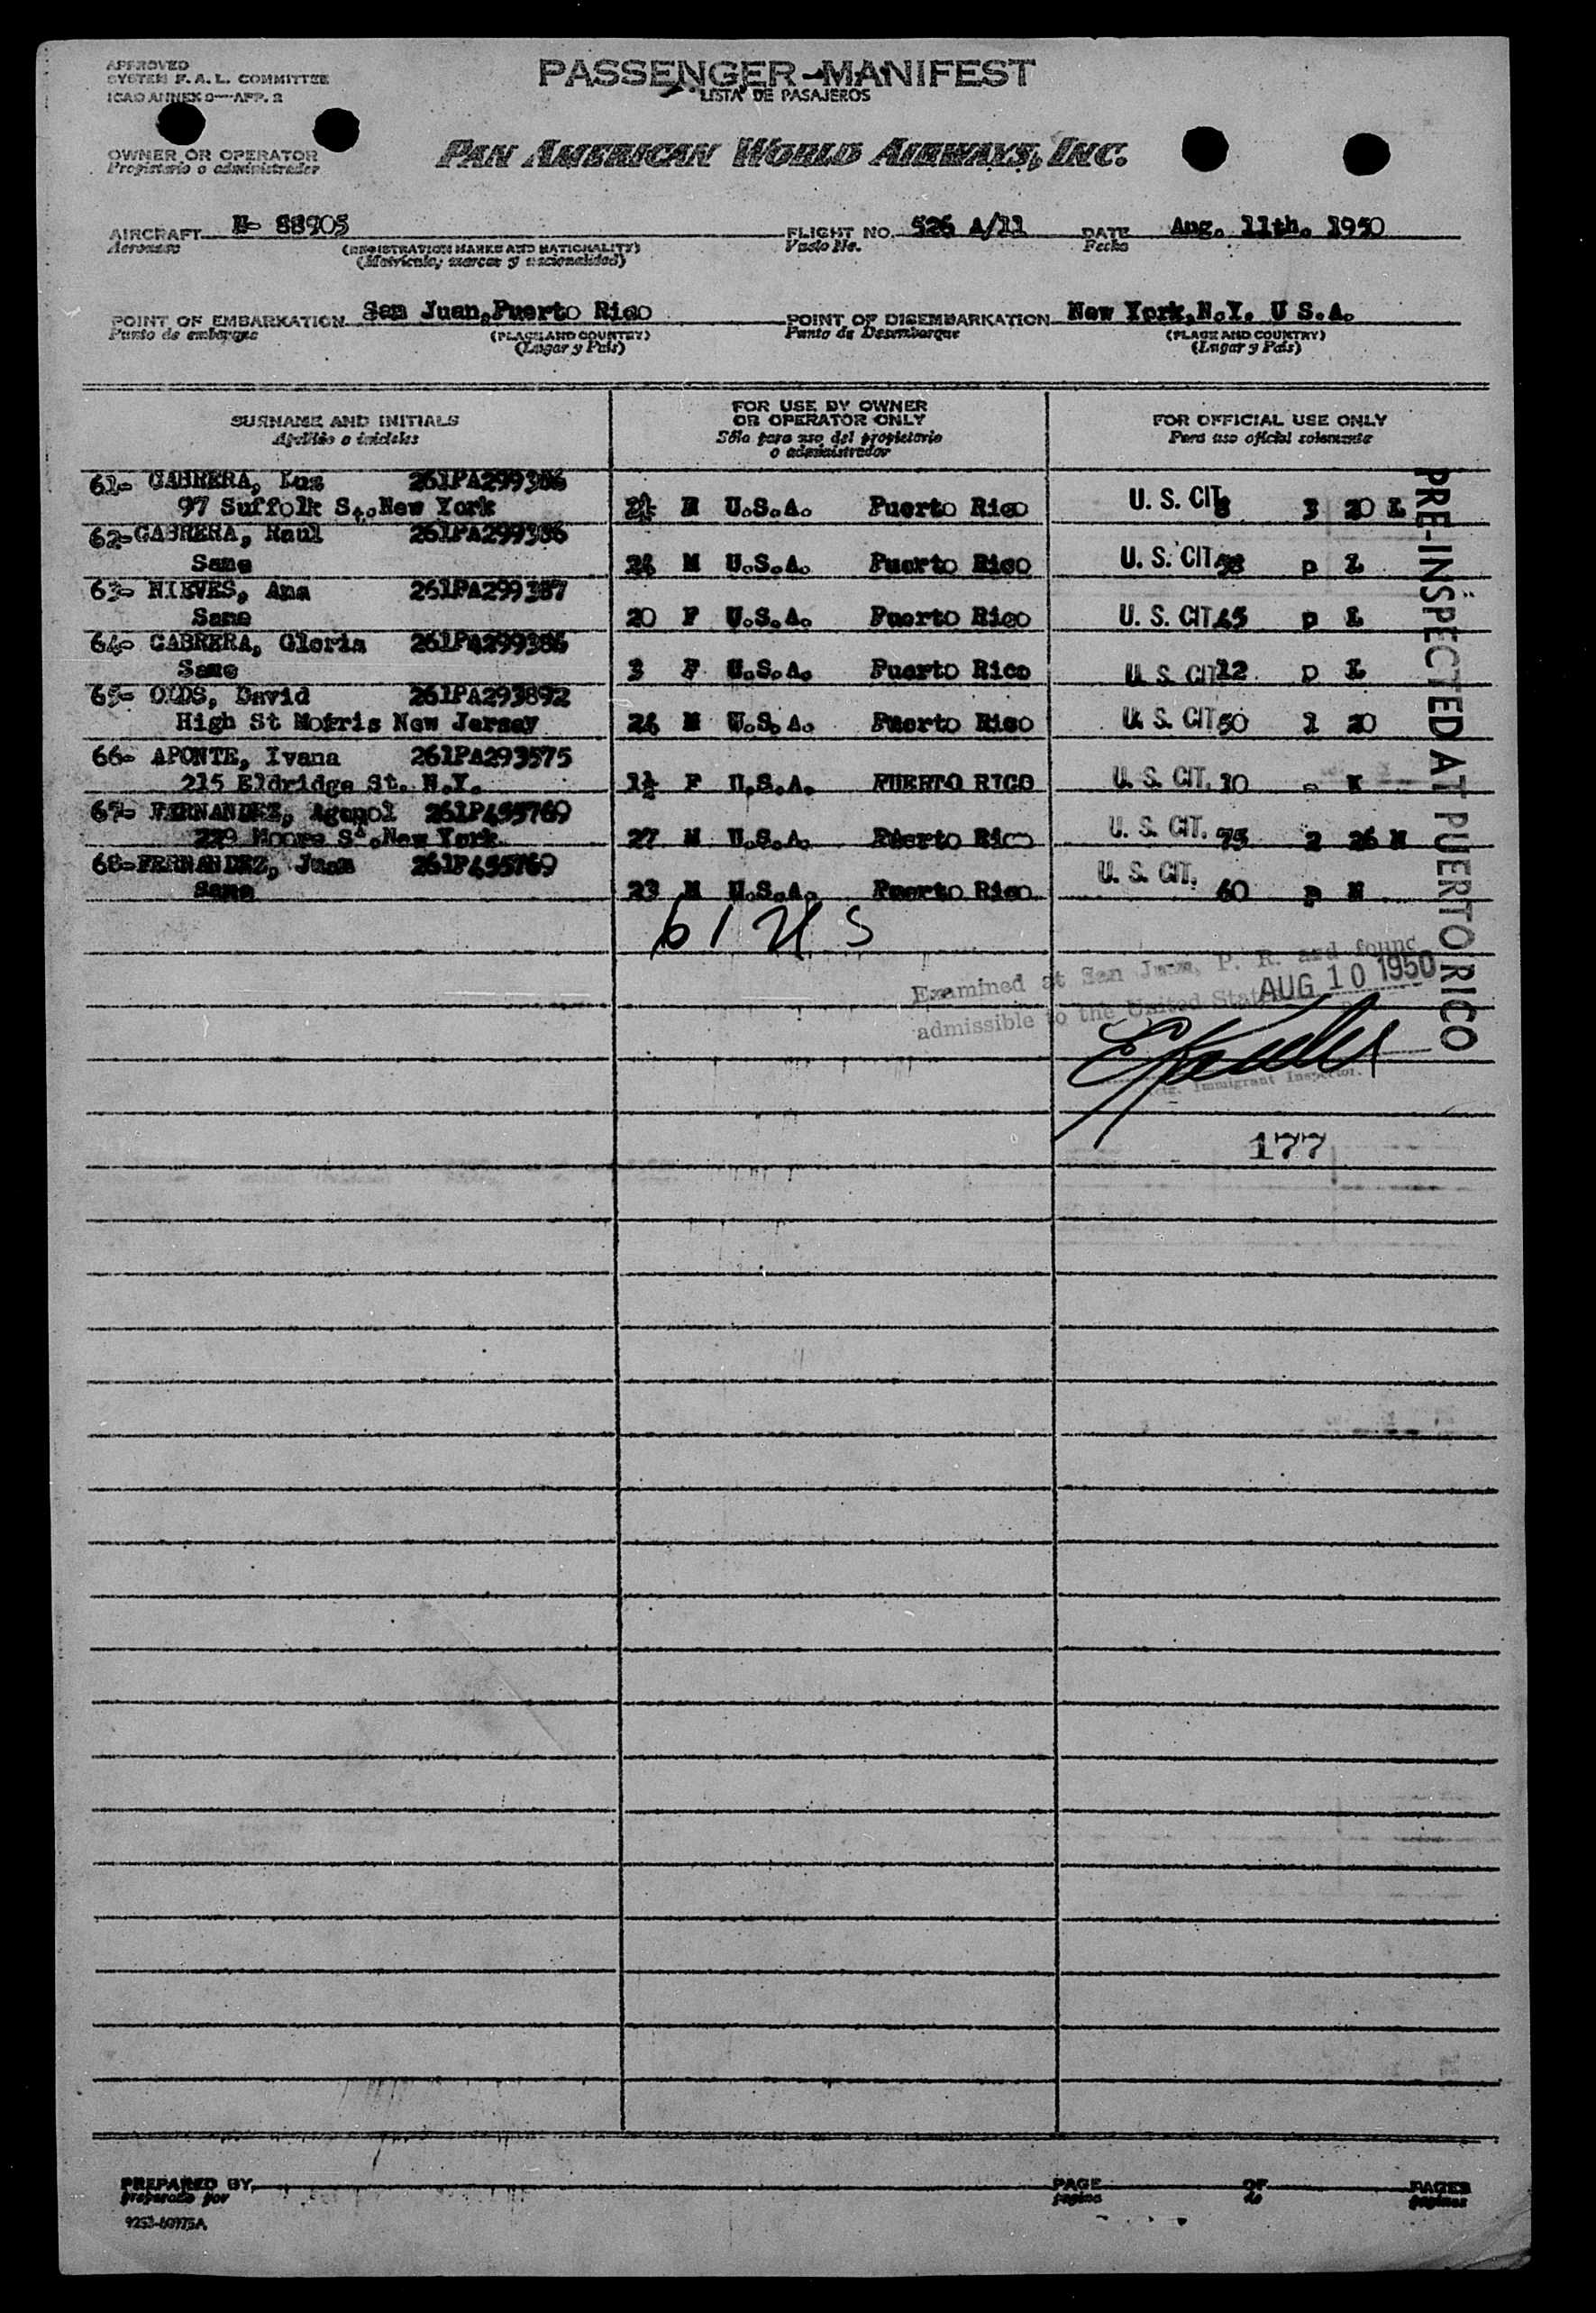 APPROVED
SYSTEM F. A. L. COMMITTEE
ICAO ANNEX 9—APP. 2
PASSENGER MANIFEST
LISTA DE PASAJEROS
OWNER OR OPERATOR
Propietario o administrador
PAN AMERICAN WORLD AIRWAYS, INC.
AIRCRAFT N- 88905 FLIGHT NO. 526 A/11 DATE Aug. 11th. 1950
Aeronave (REGISTRATION MARKS AND NATIONALITY) Vuelo No. Fecha
(Matrícula, marcas y nacionalidad)
POINT OF EMBARKATION San Juan,Puerto Rico POINT OF DISEMBARKATION New York,N.Y. U S.A.
Punto de embarque (PLACE AND COUNTRY) Punto de Desembarque (PLACE AND COUNTRY)
(Lugar y País) (Lugar y País)
SURNAME AND INITIALS FOR USE BY OWNER OR OPERATOR ONLY FOR OFFICIAL USE ONLY
Apellido e iniciales Sólo para uso del propietario o administrador Para uso oficial solamente
61- CABRERA, Luz 261PA299386
97 Suffolk St.New York U.S.A. Puerto Rico U. S. CIT. 3 20 L
62-CABRERA, Raul 261PA299386
Same 24 M U.S.A. Puerto Rico U. S. CIT. 58 p L
63- NIEVES, Ana 261PA299387
Same 20 F U.S.A. Puerto Rico U. S. CIT. 45 p L
64- CABRERA, Gloria 261PA299386
Same 3 F U.S.A. Puerto Rico U. S. CIT. 12 p L
65- OLDS, David 261PA293892
High St Morris New Jersey 24 M U.S.A. Puerto Rico U. S. CIT. 50 1 20
66- APONTE, Ivana 261PA293575
215 Eldridge St. N.Y. 1½ F U.S.A. PUERTO RICO U. S. CIT. 10
67- FERNANDEZ, Agapol 261P455769
229 Moore St.New York 27 M U.S.A. Puerto Rico U. S. CIT. 75 2 26 M
68-FERNANDEZ, Juan 261P455769
Same 23 M U.S.A. Puerto Rico U. S. CIT. 60 p M
PRE-INSPECTED AT PUERTO RICO
Examined at San Juan, P. R. and found
admissible to the United States
AUG 10 1950
Immigrant Inspector.
177
PREPARED BY PAGE OF PAGES
preparado por pagina de paginas
9253-60975A